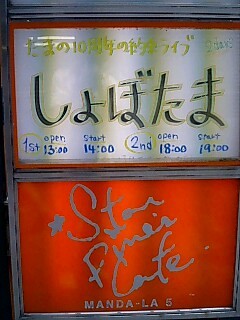 たまの10周年の約束ライブ
しょぼたま
1st open 13:00 start 14:00 2nd open 18:00 start 19:00
★Star
Pine's
Cafe.
MANDA-LA 5